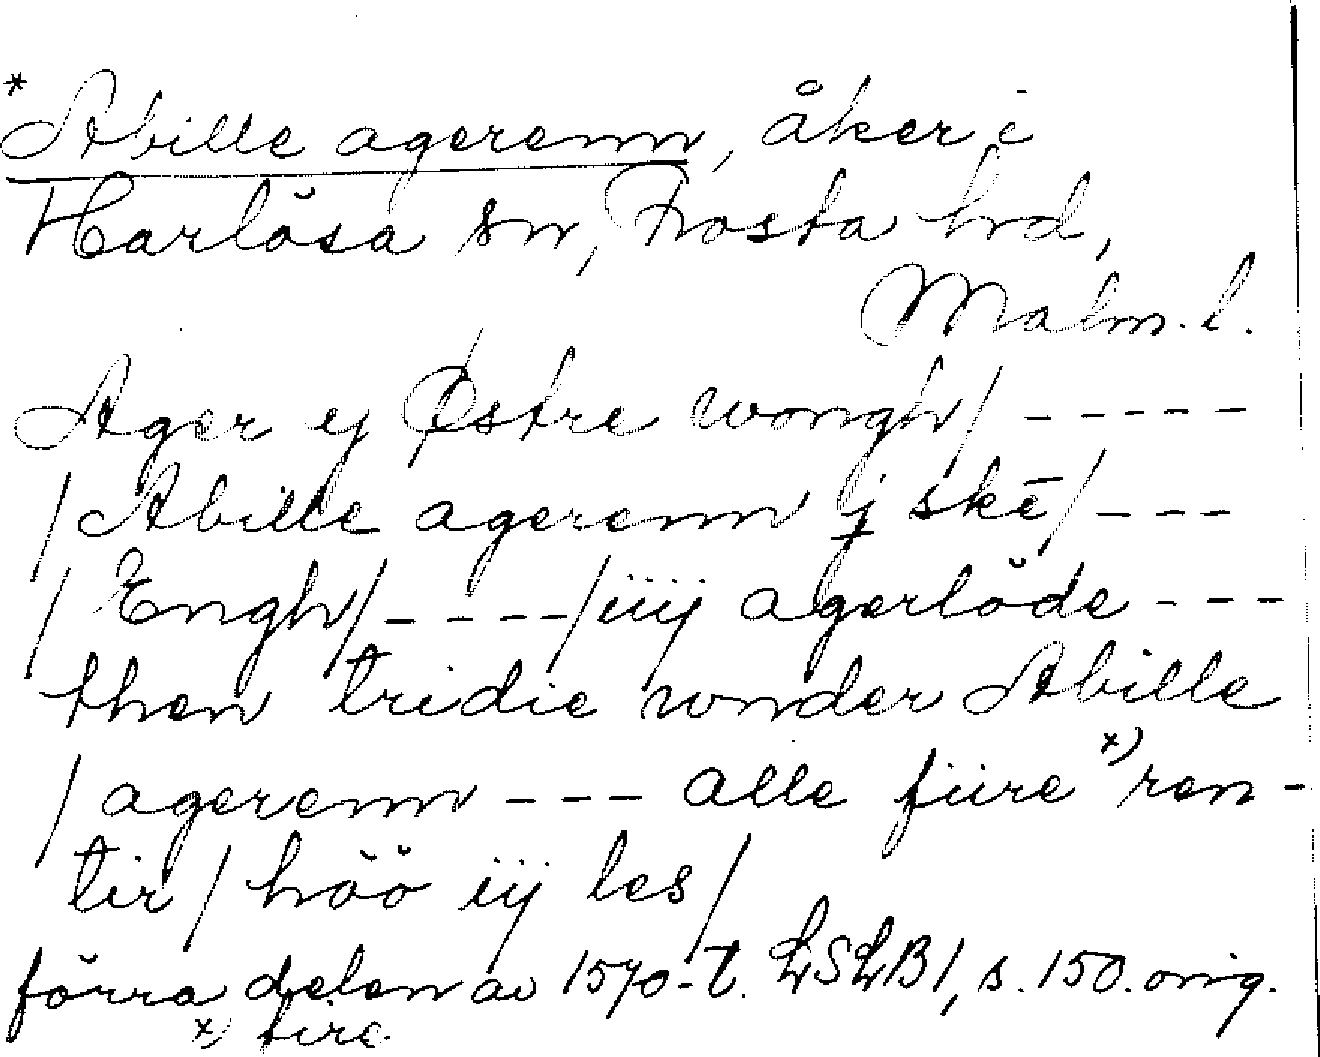 *Abille agerenn, åker i
Harlösa sn, Frosta hd,
Malm. l.
Ager ej Østre wongh/ -----
/Abille agerenn j skē/ ---
/Engh/ ----/iiij agerlöde ---
then tridie wnder Abille
/agerenn --- alle fiire x) ren-
tir/ höö iij les/
förra delen av 1570-t. LSLB1, s. 150. orig.
x) fire.